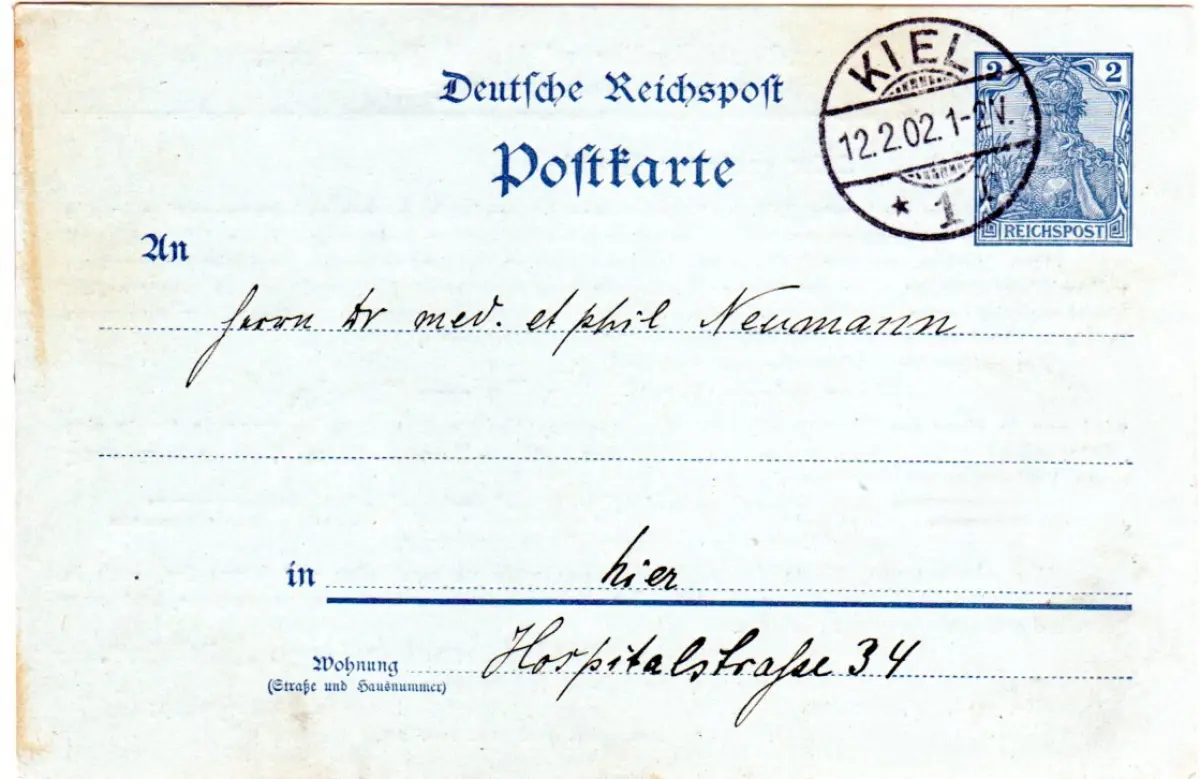 Deutsche Reichspost
Postkarte
KIEL
12.2.02.1-2N.
* 1
2 2
REICHSPOST
An
Herrn Dr med. et phil Neumann
in hier
Wohnung Hospitalstraße 34
(Straße und Hausnummer)